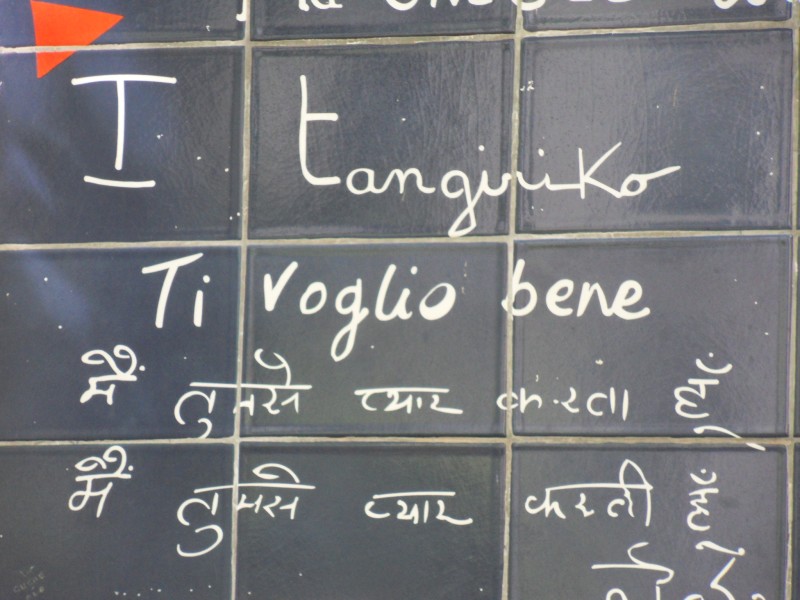 I tangiriko
Ti voglio bene
मैं तुमसे प्यार करता हूं
मैं तुमसे प्यार करती हूं